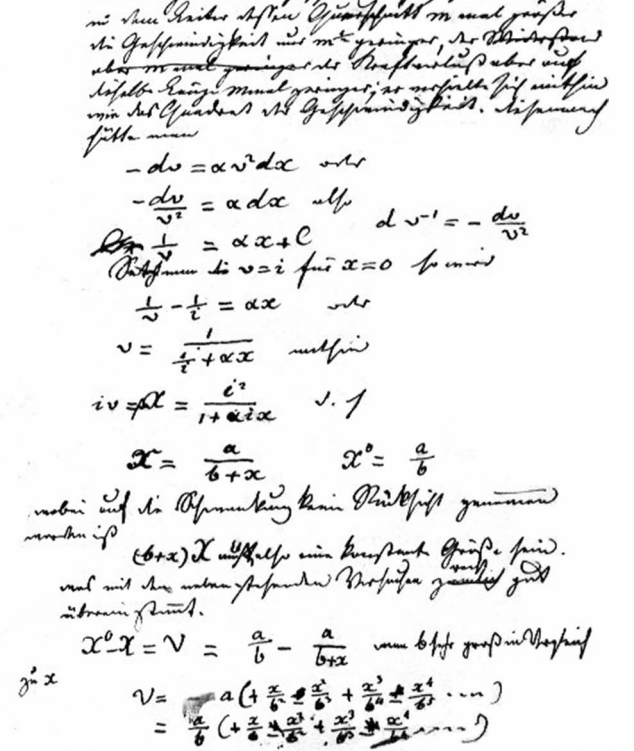 dem Leiter dessen Querschnitt m mal größer
die Geschwindigkeit nur geringer, der Widerstand
aber m mal geringer der Kraftverlust aber auf
dieselbe Länge m mal geringer, er verhielte sich mithin
wie das Quadrat der Geschwindigkeit. Diesemnach
hätte man
-dv = αv²dx oder
-dv/v² = αdx also d v⁻¹ = - dv/v²
1/v = αx + C
v = i für x = 0 so wird
1/v - 1/i = αx oder
v = 1/(1/i + αx) mithin
iv = X = i²/(1 + αix)
X = a/(b+x) X⁰ = a/b
wobei auf die Schwankung keine Rücksicht genommen
worden ist
(b+x) X also eine konstante Größe sein.
was mit den nebenstehenden Versuchen recht gut
übereinstimmt.
X⁰-X = V = a/b - a/(b+x) wenn b sehr groß in Vergleich
zu x
V = a(+ x/b² - x²/b³ + x³/b⁴ - x⁴/b⁵ ....)
= a/b (+ x/b - x²/b² + x³/b³ - x⁴/b⁴ ....)